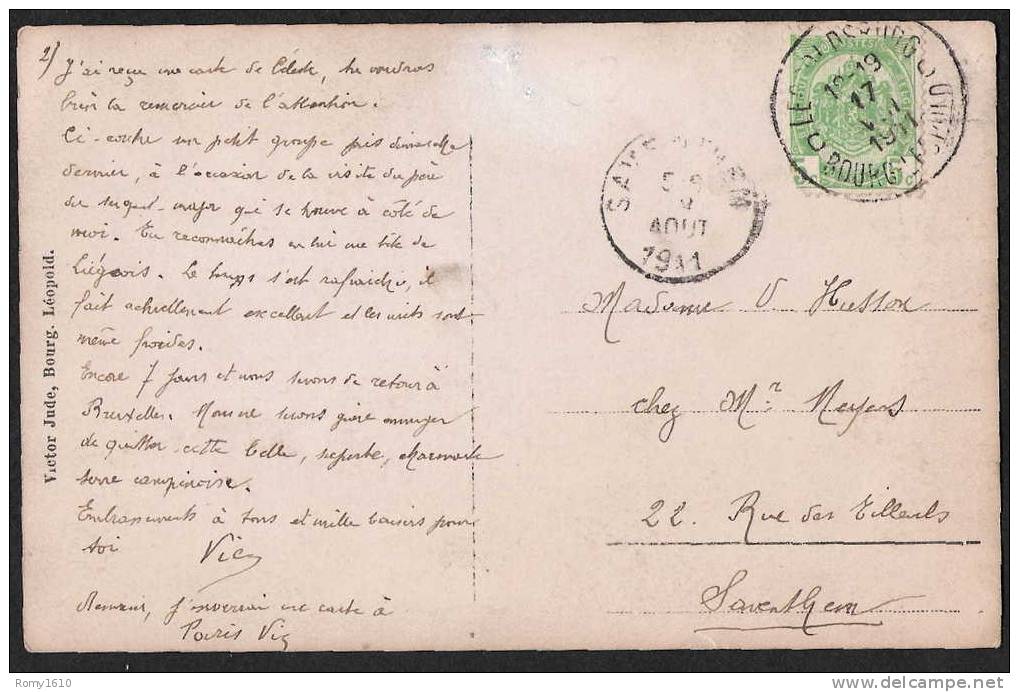 2)
J'ai reçu une carte de Céleste, tu voudras
bien la remercier de l'attention.
Ci-contre un petit groupe pris dimanche
dernier, à l'occasion de la visite du père
du sergent-major qui se trouve à côté de
moi. Tu reconnaîtras en lui une tête de
Liégeois. Le temps s'est rafraichi, il
fait actuellement excellent et les nuits sont
même froides.
Encore 7 jours et nous serons de retour à
Bruxelles. Nous ne serons guère
de quitter cette belle, superbe, charmante
terre campinoise.
Embrassements à tous et mille baisers pour
toi Vic
Demain, j'enverrai une carte à
Paris Vic
Victor Jude, Bourg. Léopold.
18-19
17
1911
SAVENTHEM
AOUT
1911
Madame V. Husson
chez Mr. Meyers
22. Rue des Tilleuls
Saventhem
Romy1610